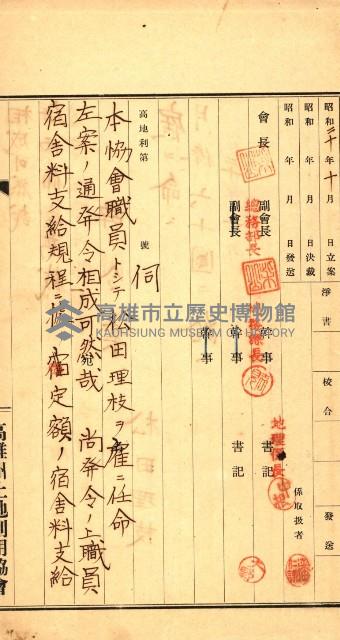 昭和二十年十月 日立案
昭和 年 月 日決裁
昭和 年 月 日發送
淨書
校合
發送
會長
副會長
副會長
總務部長
幹事
幹事
幹事
書記
書記
地理係長
係取扱者
高地利第 號
伺
本協會職員トシテ 松田理枝ヲ雇ニ任命
左案ノ通發令相成可然哉 尚發令ノ上職員
宿舍料支給規程ニ依 定額ノ宿舍料支給
高雄州土地利用協會
高雄市立歷史博物館
KAOHSIUNG MUSEUM OF HISTORY